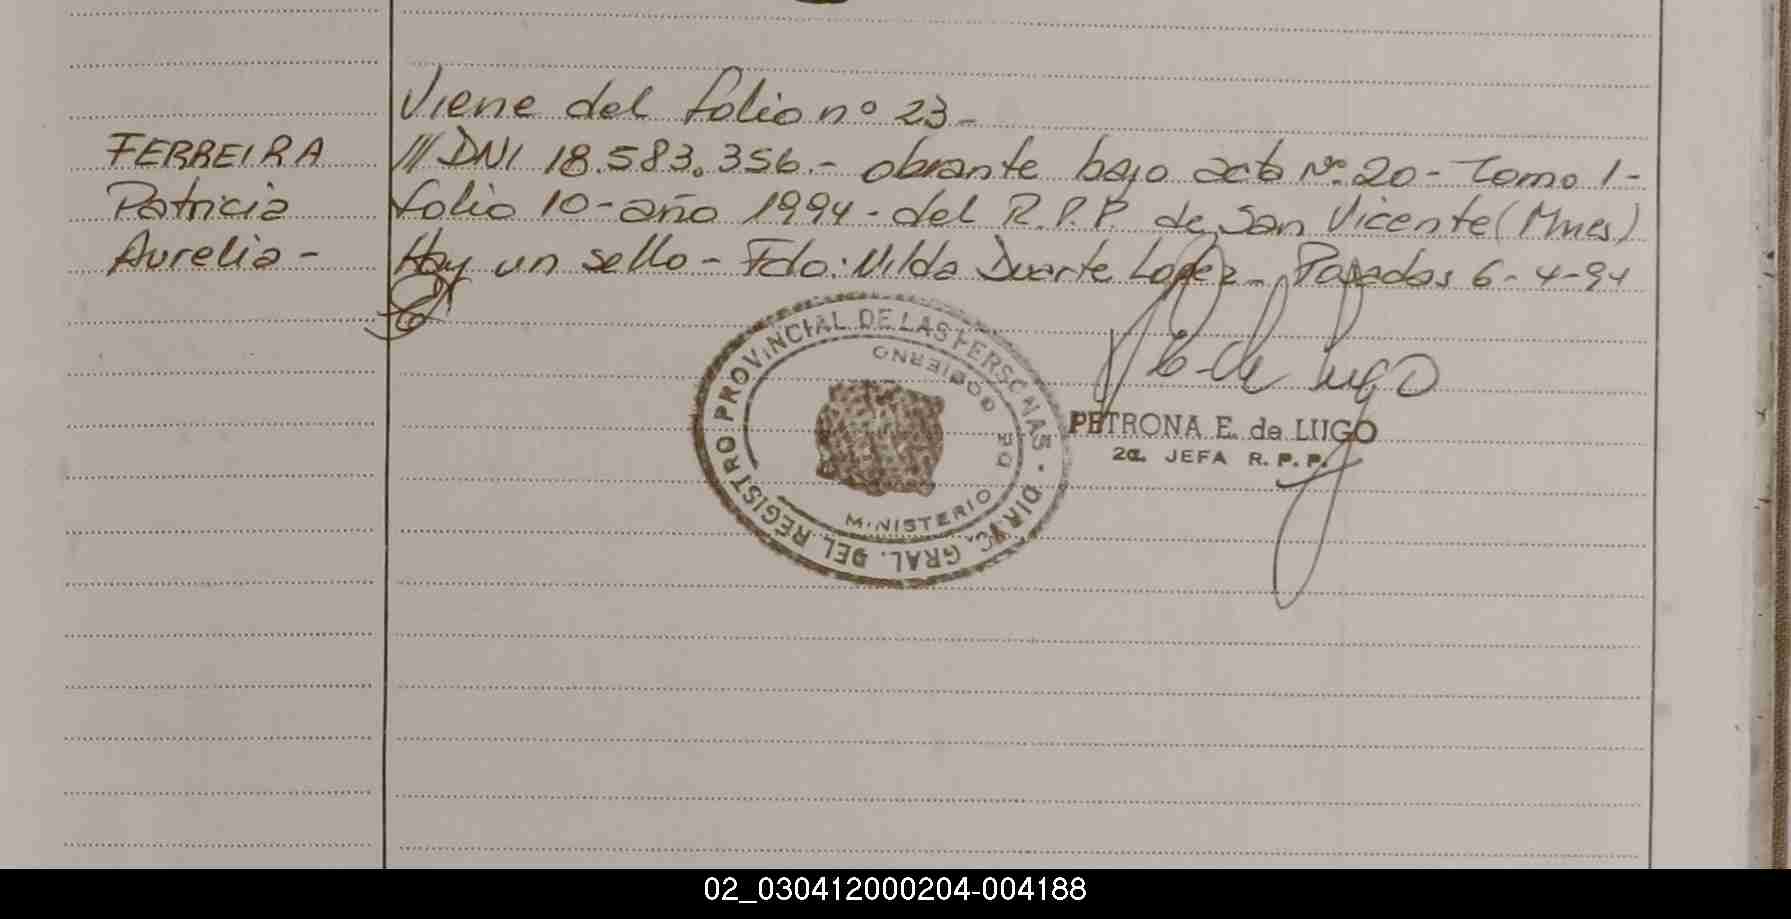 Viene del folio nº 23-
FERREIRA
Patricia
Aurelia -
/// DNI 18.583.356.- obrante bajo acta Nº 20- Tomo 1-
folio 10- año 1994- del R.P.P. de San Vicente (Mnes)
Hay un sello - Fdo: Nilda Duarte Lopez- Posadas 6-4-94
DIREC. GRAL. DEL REGISTRO PROVINCIAL DE LAS PERSONAS
MINISTERIO DE GOBIERNO
P E de Lugo
PETRONA E. de LUGO
2a. JEFA R.P.P.
02_030412000204-004188